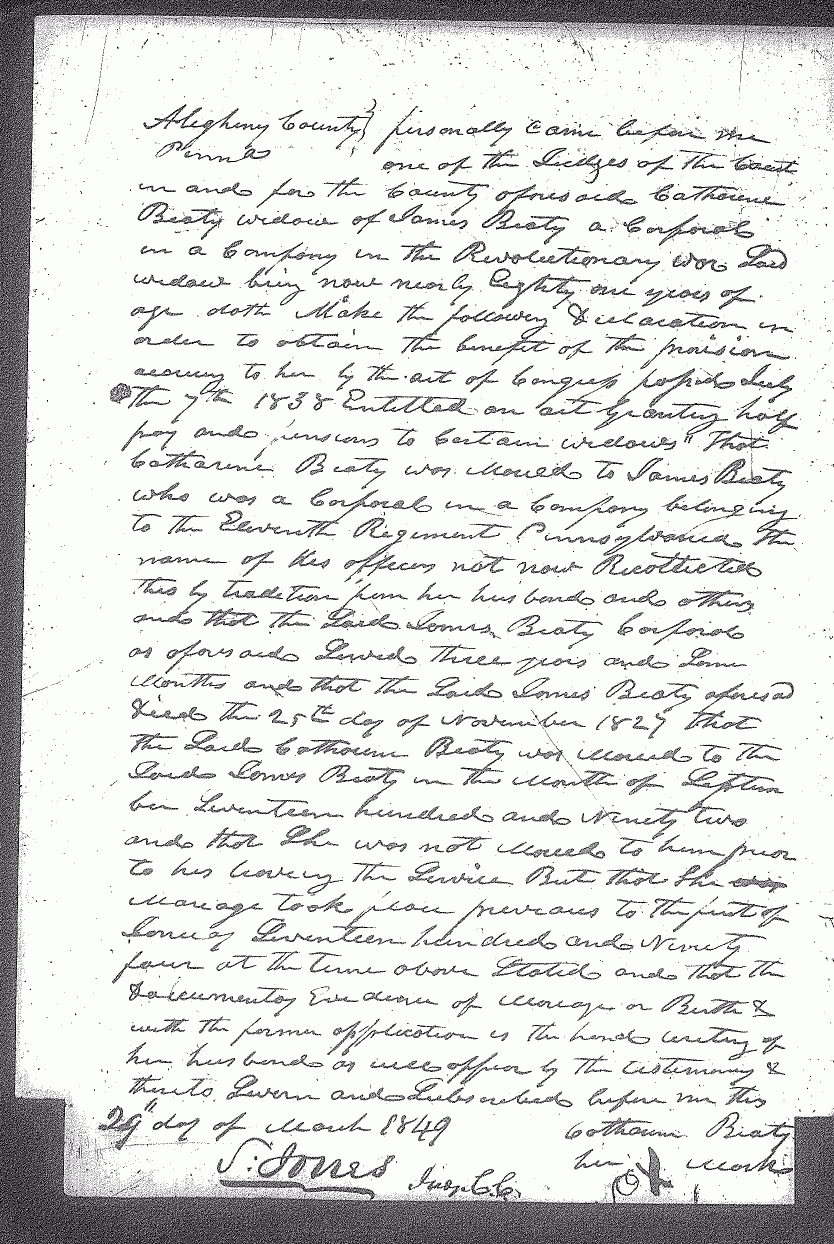 Alegheny County } personally came before me
Penna one of the Judges of the Court
in and for the County aforesaid Catharine
Beaty widow of James Beaty a Corporal
in a Company in the Revolutionary war Said
widow being now nearly Eighty one years of
age doth Make the following Declaration in
order to obtain the benefit of the provision
accruing to her by the act of Congress passed July
the 7th 1838 Entitled an act granting half
pay and pensions to Certain widows" that
Catharine Beaty was Maried to James Beaty
who was a Corporal in a Company belonging
to the Eleventh Regiment Pennsylvania the
name of his officers not now Recollected
this by tradition from her husband and others
and that the Said James Beaty Corporal
as aforesaid Served three years and Some
Months and that the Said James Beaty aforesad
Died the 25th day of November 1827 that
the Said Catharine Beaty was Maried to the
Said James Beaty in the Month of Septem
ber Seventeen hundred and Ninety two
and that She was not Maried to him prior
to his leaving the Service But that She was
Mariage took place previous to the first of
Janry Seventeen hundred and Ninety
four at the time above Stated and that the
Documentary Evidence of Mariage or Birth &
with the former application is the hand writing of
her husband as will appear by the testimony &
thereto Sworn and Subscribed before me this
29" day of March 1849 Catharine Beaty
S. Jones her X Mark